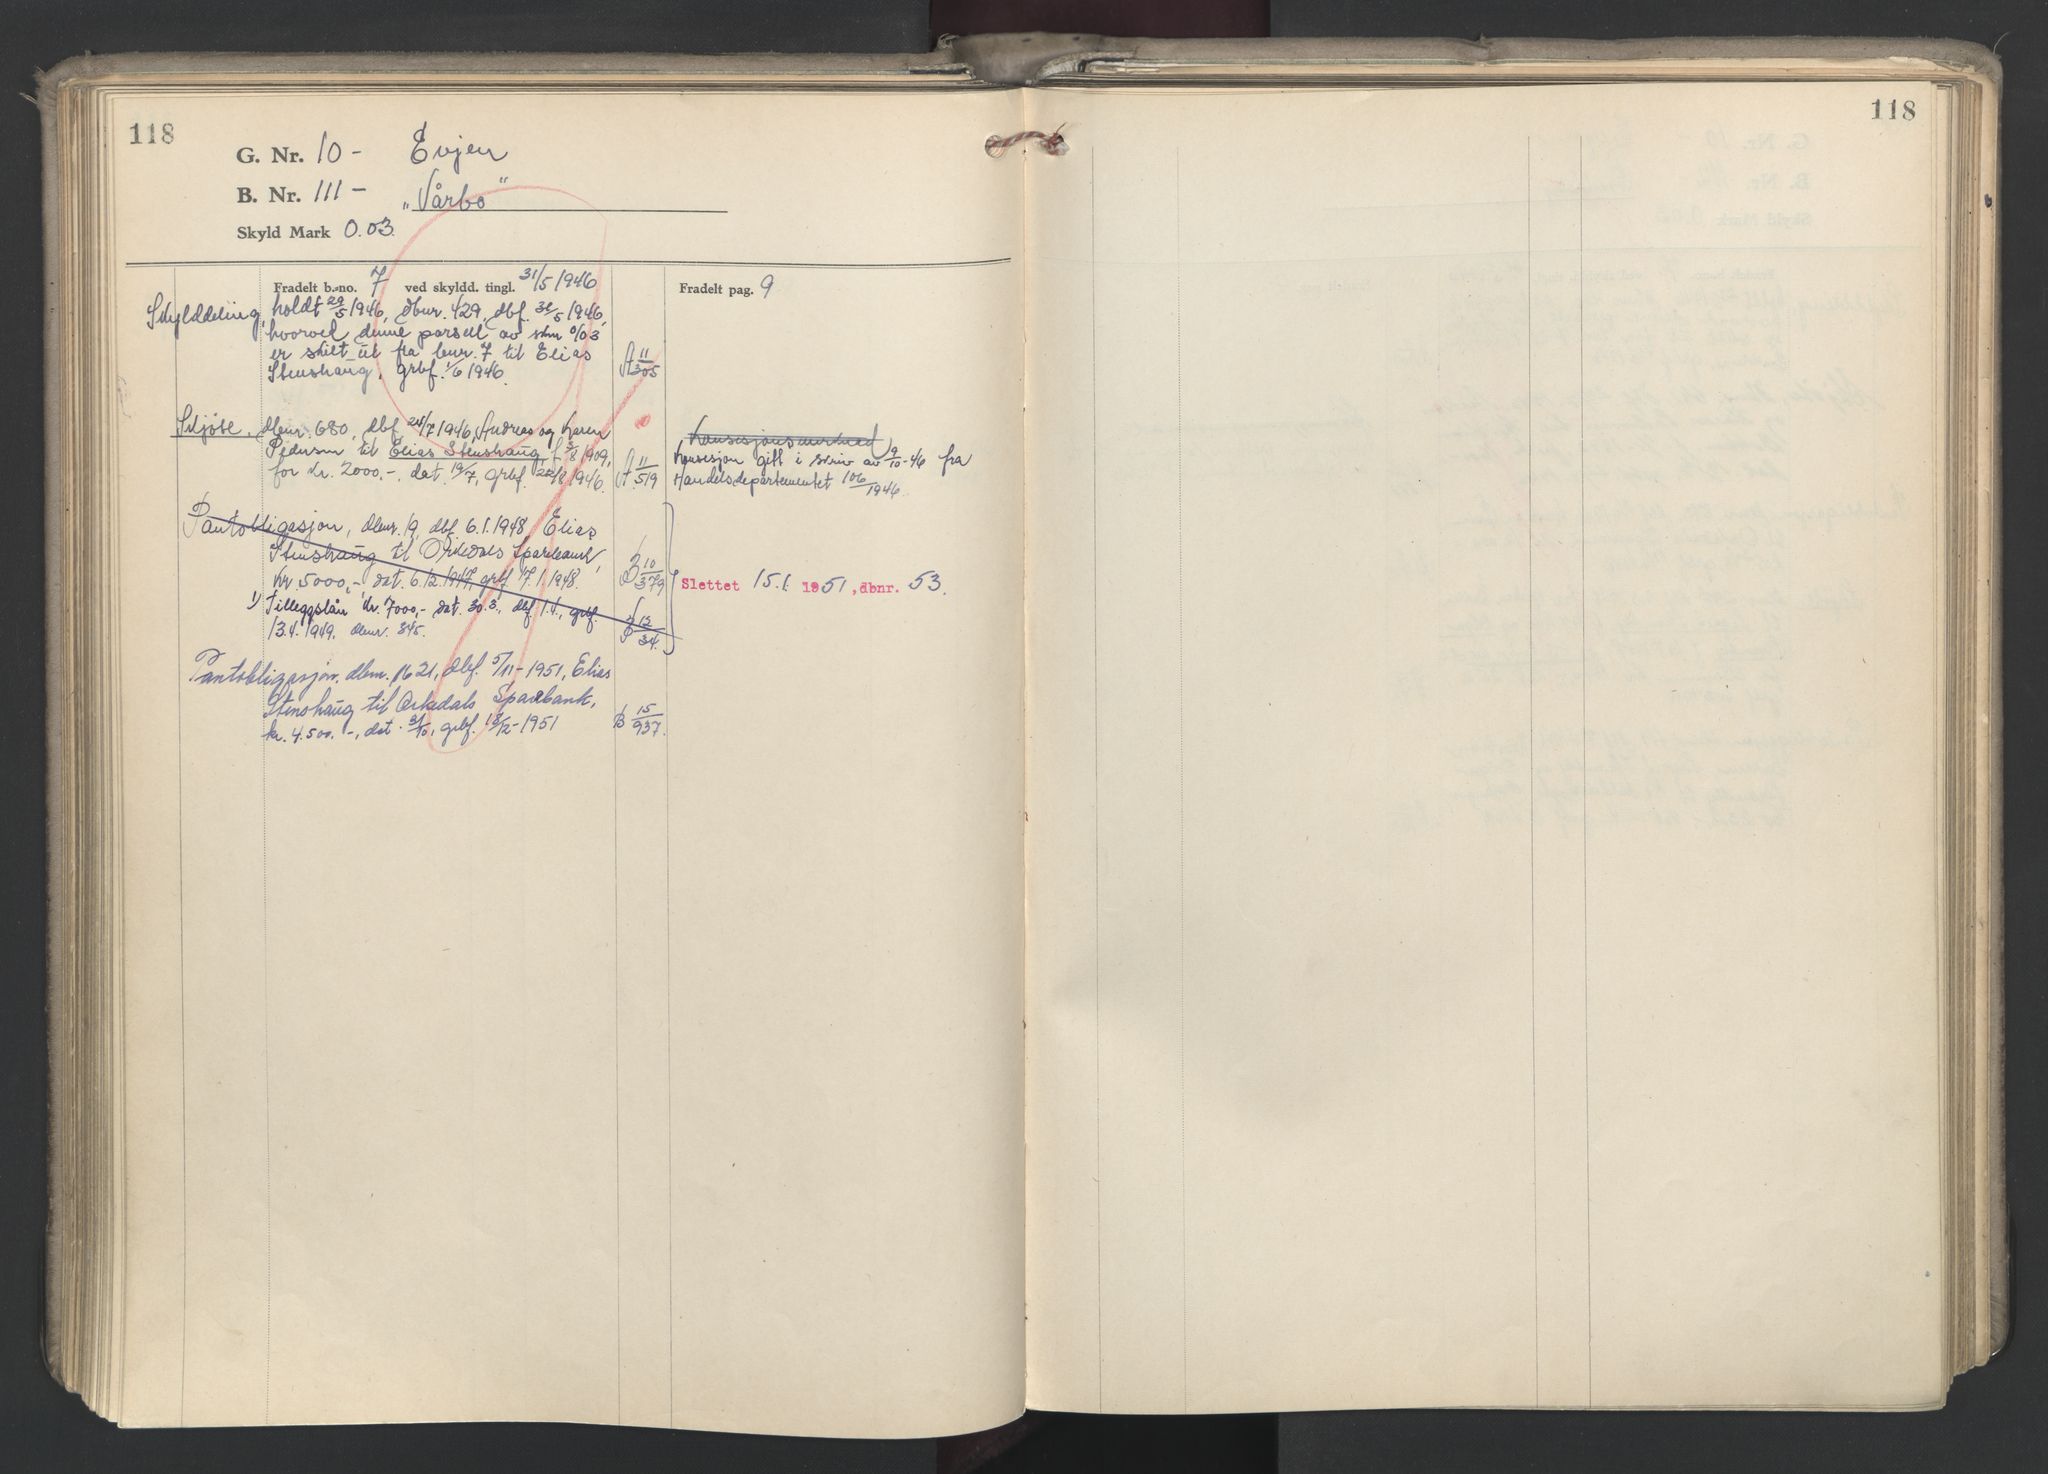 118
G. Nr. 10 - Evjen
B. Nr. 111 - "Vårbo"
Skyld Mark 0.03.
Fradelt b.-no. 7 ved skyldd. tingl. 31/5 1946
Fradelt pag. 9
Skylddeling, holdt 29/5 1946, dbnr. 429, dbf. 31/5 1946,
hvorved denne parsell av skm 0/03
er skilt ut fra bnr. 7 til Elias
Stenshaug, grbf. 1/6 1946. A 11/305
Skjøte, dbnr. 680, dbf 24/7 1946, Andreas og Karen
Pedersen til Elias Stenshaug f. 5/8 1909,
for kr. 2000.-, dat. 19/7, grbf. 22/8 1946. A 11/519
Konsesjon gitt i skriv av 9/10-46 fra
Handelsdepartementet 106/1946.
Pantobligasjon, dbnr. 19, dbf. 6.1.1948, Elias
Stenshaug til Orkedals Sparebank,
kr. 5000,-, dat. 6.12.1947, grbf. 17.1.1948. B 10/379
1) Tilleggslån kr. 7000,- dat. 30.3., dbf. 1.4., grbf.
13.4.1949. dbnr. 345. B 12/34.
Slettet 15.1. 1951, dbnr. 53.
Pantobligasjon, dbnr. 1621, dbf. 5/11-1951, Elias
Stenshaug til Orkedals Sparebank,
kr. 4.500.-, dat. 31/10, grbf. 18/12-1951 B 15/937.
118